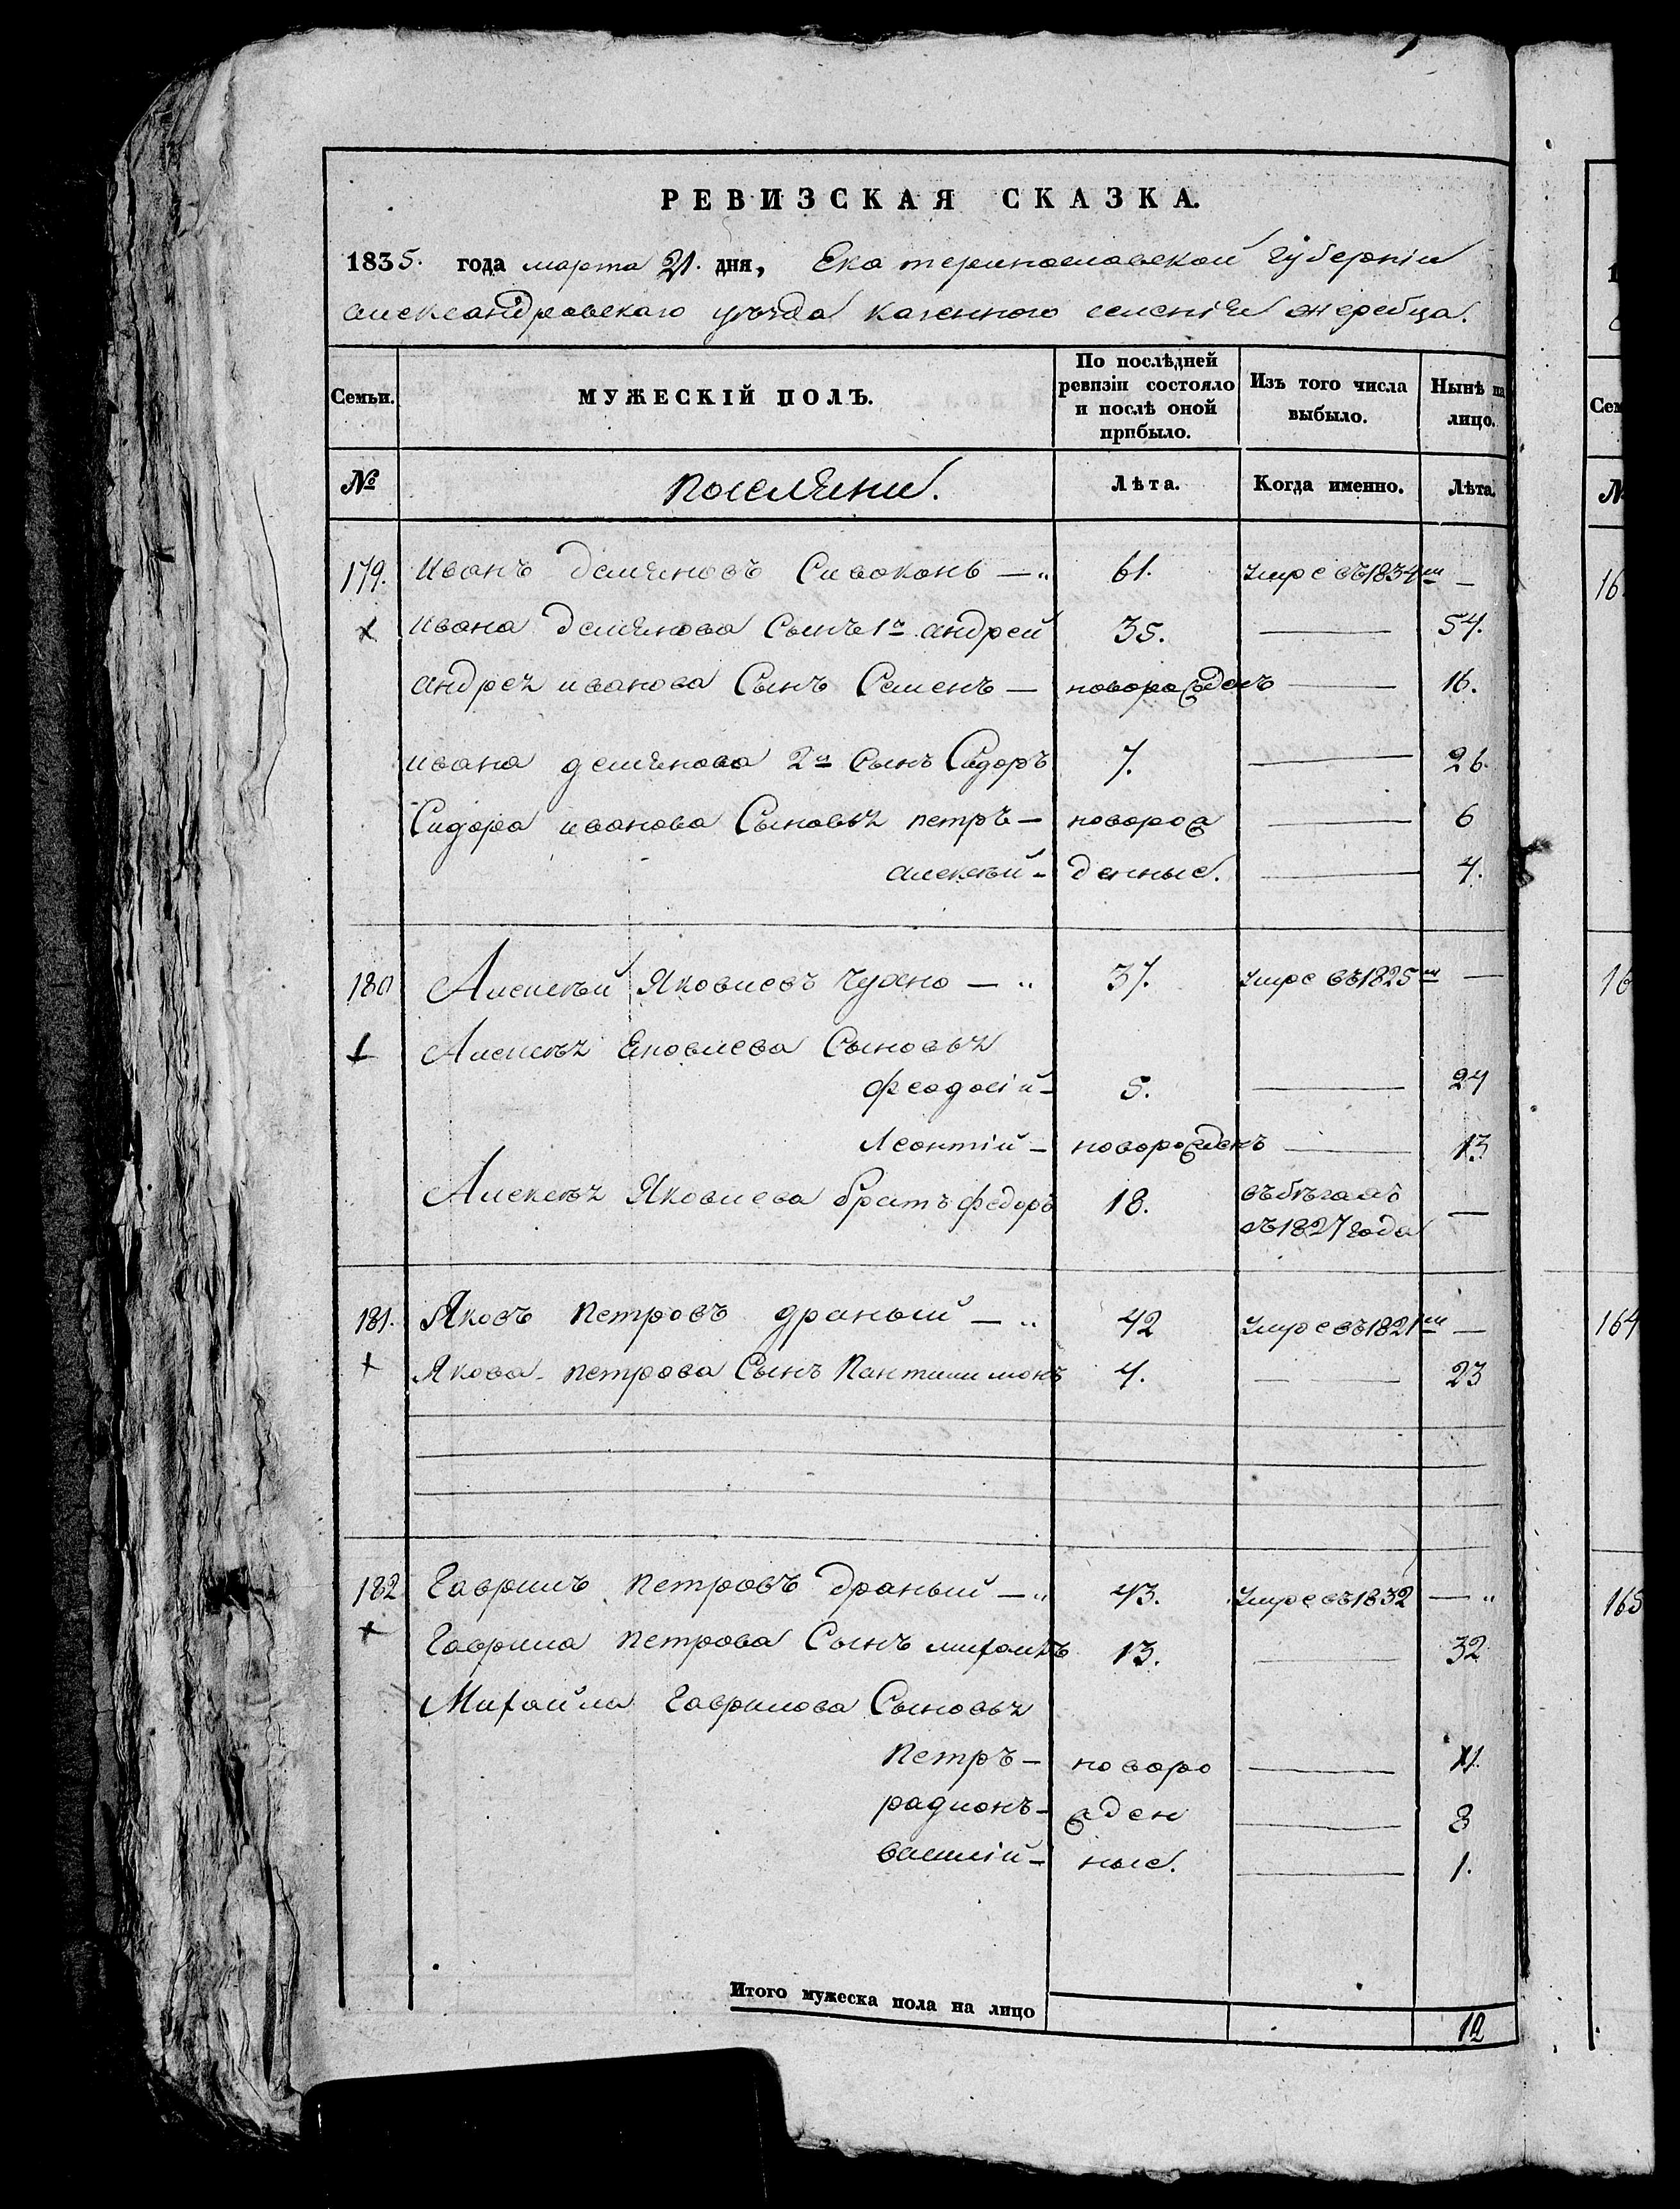 РЕВИЗСКАЯ СКАЗКА.
1835. года марта 21. дня, Екатеринославской Губерніи
александровскаго уѣзда казенного селенія жеребца.
Семьи. МУЖЕСКІЙ ПОЛЪ. По послѣдней ревизіи состояло и послѣ оной прибыло. Изъ того числа выбыло. Нынѣ на лицо.
№ поселяни. Лѣта. Когда именно. Лѣта.
179. Иванъ демяновъ Сивоконь — 61. умре въ 1834м —
х ивана демянова Сынъ 1й андрей 35. — 54.
андрея иванова Сынъ Семенъ — новорожденъ — 16.
ивана демянова 2й Сынъ Сидоръ 7. — 26.
Сидора иванова Сыновья петръ — новорож — 6
алексѣй — денные. — 4.
180 Алексѣй Яковлевъ Чухно — 37. умре въ 1825м —
х Алексѣя Яковлева Сыновья
феодосій — 5. — 24
Леонтій — новорожденъ — 13
Алексѣя Яковлева братъ федоръ 18. въ бѣгахъ —
съ 1827 года
181. Яковъ петровъ драный — 42 умре въ 1821м —
х Якова петрова Сынъ Пантилимонъ 4. — 23
182 Гаврилъ петровъ драный — 43. умре въ 1832 —
х Гаврила петрова Сынъ михаилъ 13. — 32
Михаила Гаврилова Сыновья
петръ — новоро — 11.
радионъ — жден — 8
василій — ные. — 1.
Итого мужеска пола на лицо 12
1
Сем
№
16
16
164
165